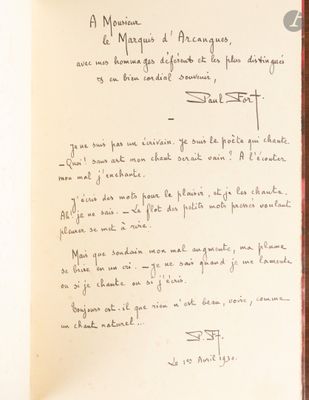 A Monsieur
le Marquis d'Arcangues,
avec mes hommages déférents et les plus distingués
& en bien cordial souvenir,
Paul Fort.
—
Je ne suis pas un écrivain. Je suis le poète qui chante.
— Quoi! sans art mon chant serait vain? A l'écouter
mon mal j'enchante.
J'écris des mots pour le plaisir, et je les chante.
Ah! je ne sais. — Le flot des petits mots pressés voulant
pleurer se met à rire.
Mais que soudain mon mal augmente, ma plume
se brise en un cri. — Je ne sais quand je me lamente
ou si je chante ou si j'écris.
Toujours est-il que rien n'est beau, voire, comme
un chant naturel...
P. F.
Le 1er Avril 1930.